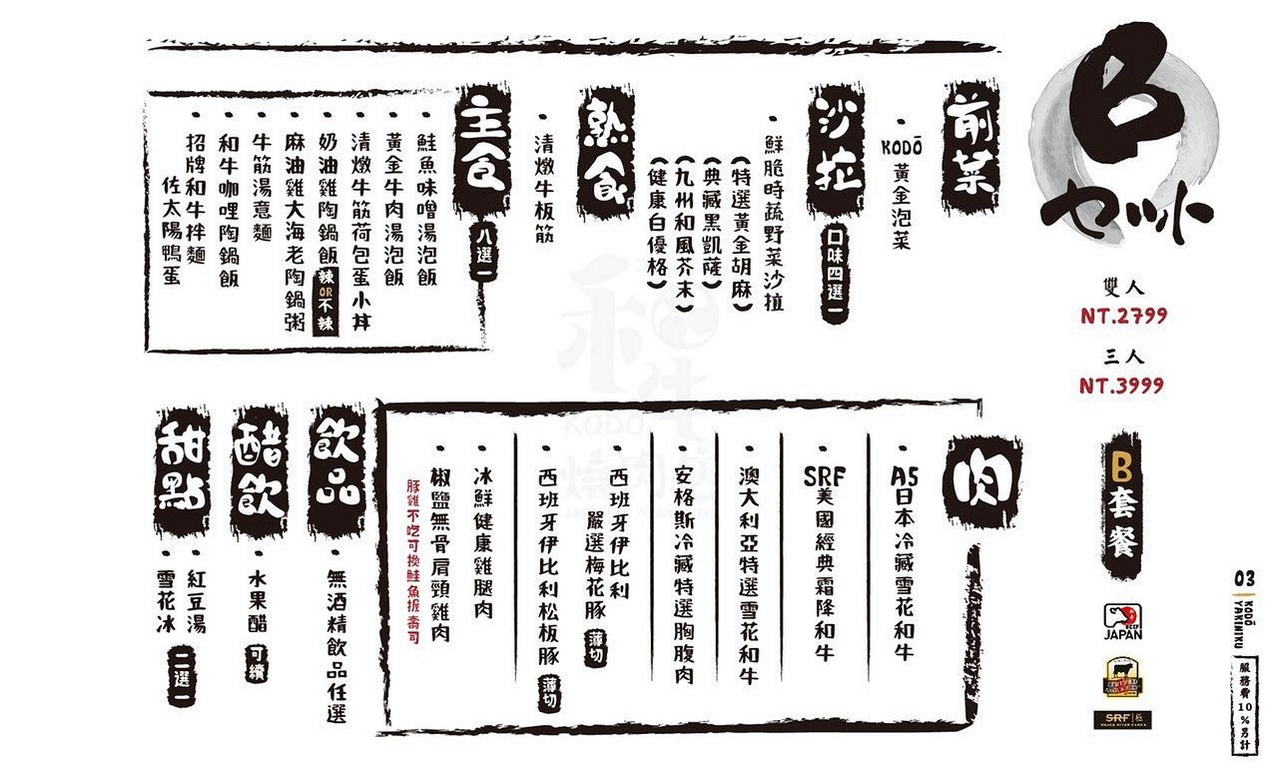 B
セット
雙人
NT.2799
三人
NT.3999
B套餐
JAPAN
SRF
03
KODŌ
YAKINIKU
服務費10%另計
前菜
KODŌ 黃金泡菜
沙拉
口味四選一
鮮脆時蔬野菜沙拉
(特選黃金胡麻)
(典藏黑凱薩)
(九州和風芥末)
(健康白優格)
熟食
清燉牛板筋
主食
八選一
鮭魚味噌湯泡飯
黃金牛肉湯泡飯
清燉牛筋荷包蛋小丼
奶油雞陶鍋飯 辣OR不辣
麻油雞大海老陶鍋粥
牛筋湯意麵
和牛咖哩陶鍋飯
招牌和牛拌麵
佐太陽鴨蛋
肉
A5日本冷藏雪花和牛
SRF美國經典霜降和牛
澳大利亞特選雪花和牛
安格斯冷藏特選胸腹肉
西班牙伊比利
嚴選梅花豚 薄切
西班牙伊比利松板豚 薄切
冰鮮健康雞腿肉
椒鹽無骨肩頸雞肉
豚雞不吃可換鮭魚握壽司
飲品
無酒精飲品任選
醋飲
水果醋 可續
甜點
紅豆湯
雪花冰
二選一